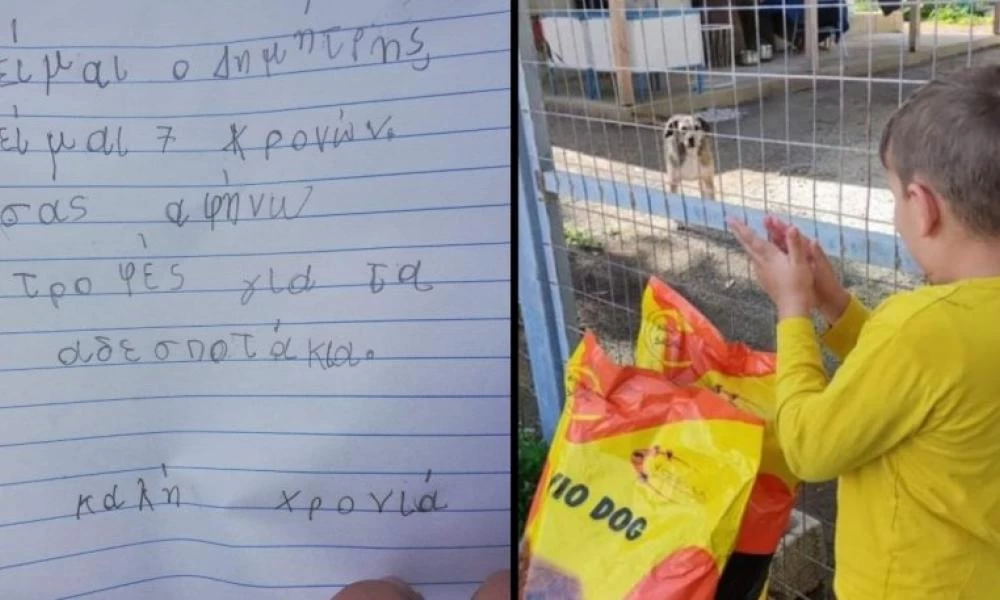 είμαι ο Δημήτρης
είμαι 7 χρονών.
σας αφήνω
τροφές για τα
αδεσποτάκια.
καλή χρονιά
VIO DOG